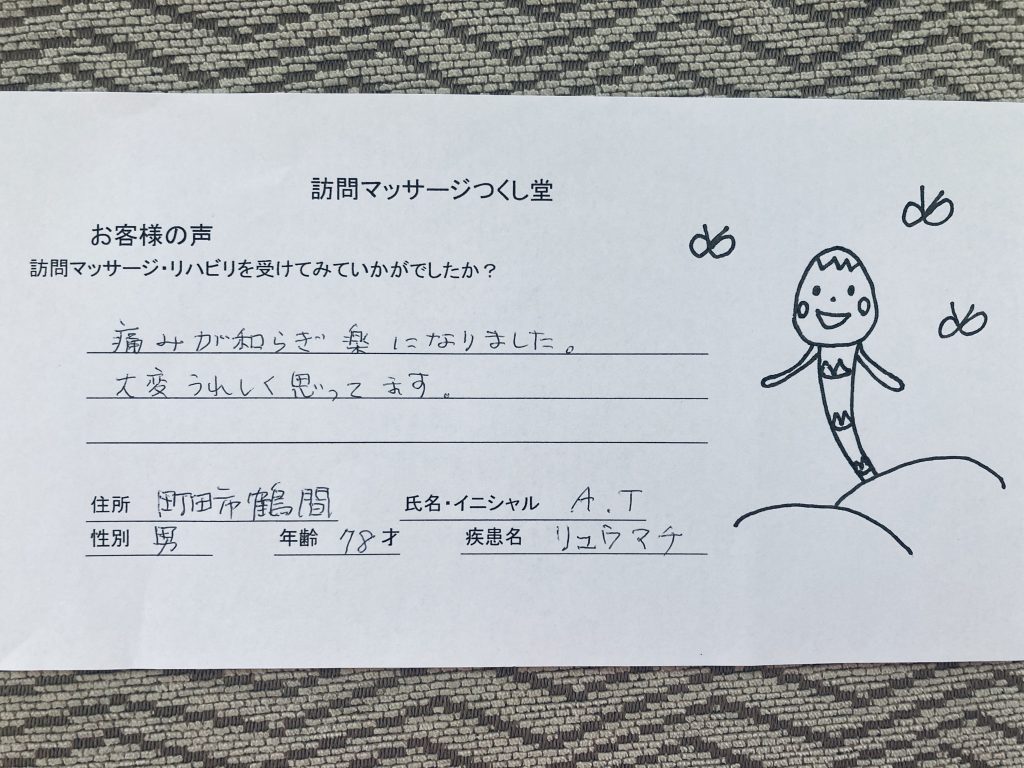 訪問マッサージつくし堂
お客様の声
訪問マッサージ・リハビリを受けてみていかがでしたか？
痛みが和らぎ楽になりました。
大変うれしく思ってます。
住所 町田市鶴間 氏名・イニシャル A.T
性別 男 年齢 78才 疾患名 リュウマチ